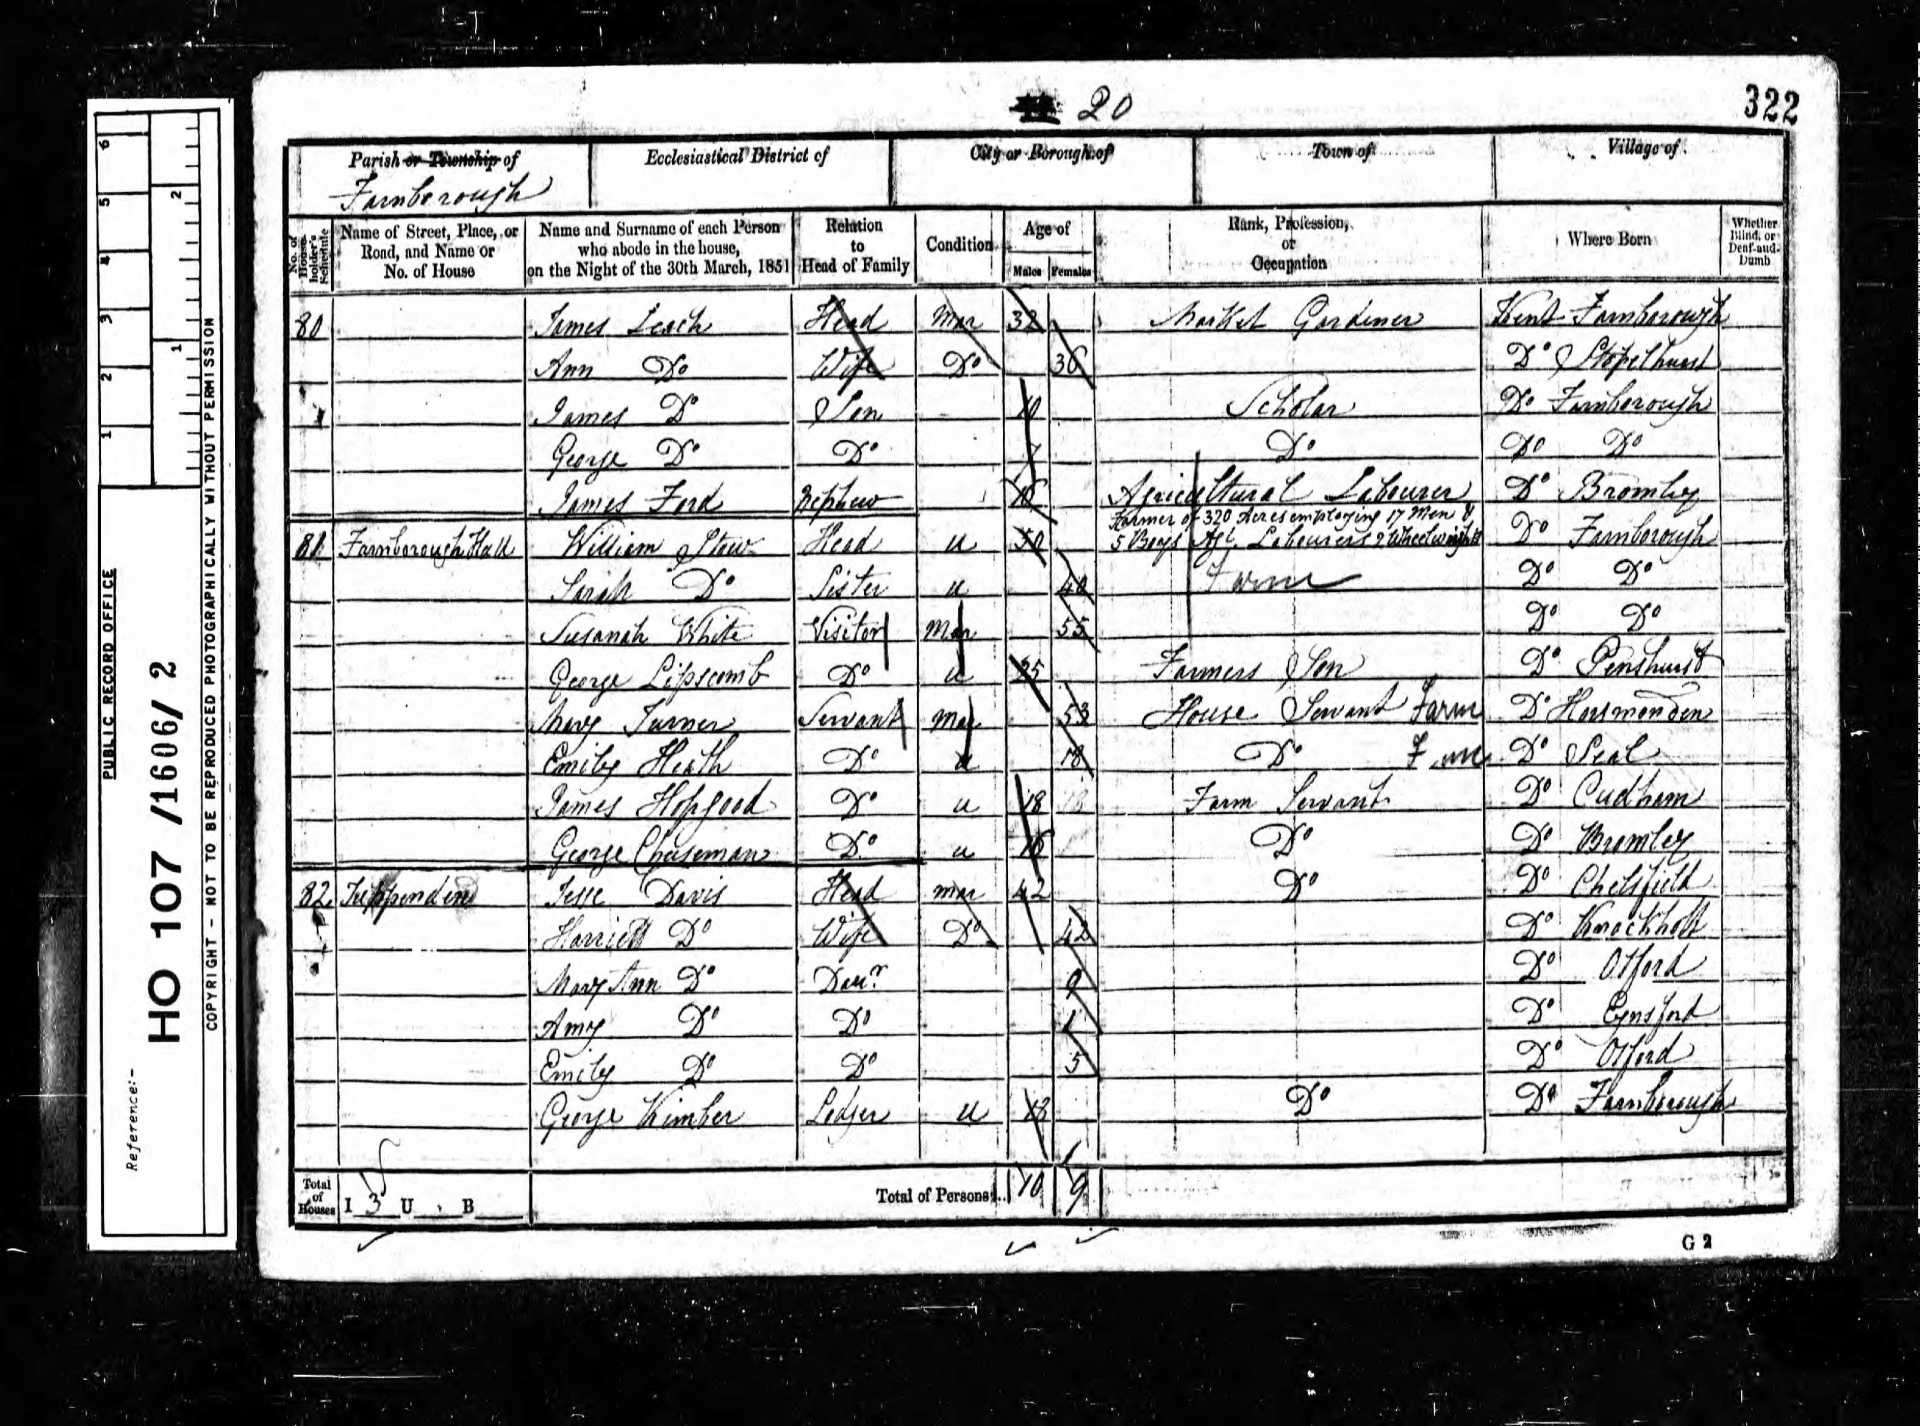 20
322
Parish or Township of
Farnborough
Ecclesiastical District of
City or Borough of
Town of
Village of
No. of House-holder's Schedule
Name of Street, Place, or Road, and Name or No. of House
Name and Surname of each Person who abode in the house, on the Night of the 30th March, 1851
Relation to Head of Family
Condition
Age of
Males
Females
Rank, Profession, or Occupation
Where Born
Whether Blind, or Deaf-and-Dumb
80 James Leach Head Mar 32 Market Gardener Kent Farnborough
Ann Do Wife Do 36 Do Staplehurst
James Do Son 10 Scholar Do Farnborough
George Do Do 7 Do Do Do
James Ford Nephew 16 Agricultural Labourer Do Bromley
81 Farnborough Hall William Stow Head u Farmer of 320 Acres employing 17 Men & 5 Boys Agl. Labourers 2 Wheelwrights Do Farnborough
Sarah Do Sister u 48 Farm Do Do
Susanah White Visitor Mar 55 Do Do
George Lipscomb Do u 25 Farmers Son Do Penshurst
Mary Turner Servant Mar 53 House Servant Farm Do Horsmonden
Emily Heath Do u 18 Do Farm Do Seal
James Hopgood Do u 18 Farm Servant Do Cudham
George Cheeseman Do u 16 Do Do Bromley
82 Tubbenden Jesse Davis Head Mar 42 Do Do Chelsfield
Harriett Do Wife Do 42 Do Knockholt
Mary Ann Do Daur. 9 Do Otford
Amy Do Do Do Eynsford
Emily Do Do 5 Do Otford
George Kimber Lodger u 18 Do Do Farnborough
Total of Houses I 3 U B
Total of Persons... 10 9
G 2
PUBLIC RECORD OFFICE
Reference:-
HO 107 /1606/ 2
COPYRIGHT - NOT TO BE REPRODUCED PHOTOGRAPHICALLY WITHOUT PERMISSION
1 2 3 4 5 6
1 2